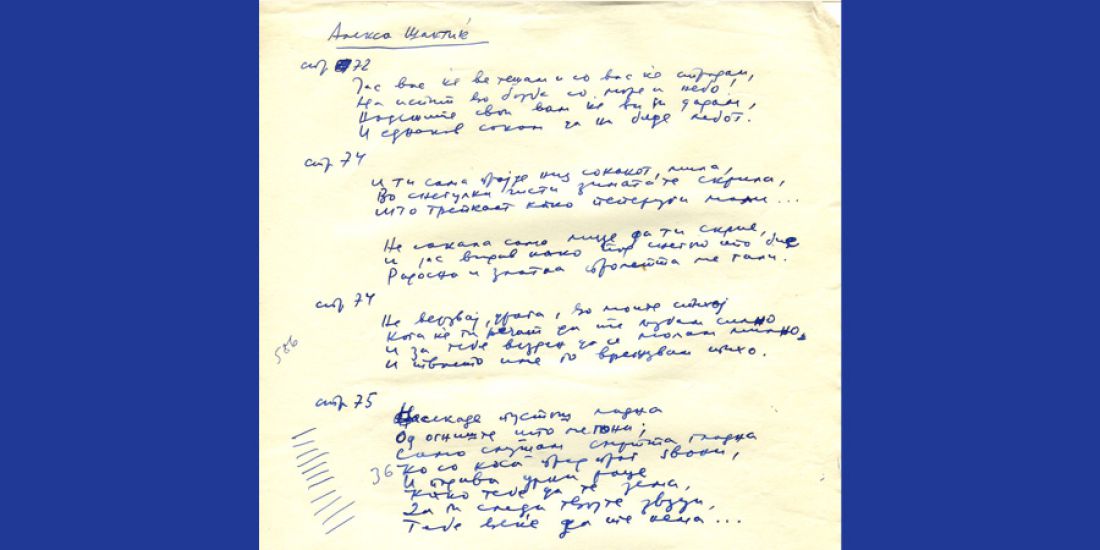 Алекса Шантиќ
стр 72
Јас вас ќе ве тешам и со вас ќе страдам,
На истиот во борба со море и небо!
Надежите свои вам ќе ви ги дарам,
И еднаков со вам за ни биде лебот.
стр 74
И ти сама појде низ сокакот, мила,
Во снегулки чисти зимата те скрила,
што трепкаат како пеперуги мали...
Не сакала само лице да ти скрие,
И јас видов како под снегот што бие
Радосна и златна пролетта ме гали.
стр. 74
Не верувај, драга, во моите стихој
Кога ќе ти речат да те љубам силно
И за тебе везден да се молам милно,
И твоето име го врежувам тихо.
586
стр. 75
Насекаде пустош ладна
Од огниште што не гони;
Само слушам смртта гладна
36 Ко со коса пред праг ѕвони,
И пружа црни раце
Како тебе да те зема,
За ги следи твојте ѕвезди,
Тебе веќе да те нема...